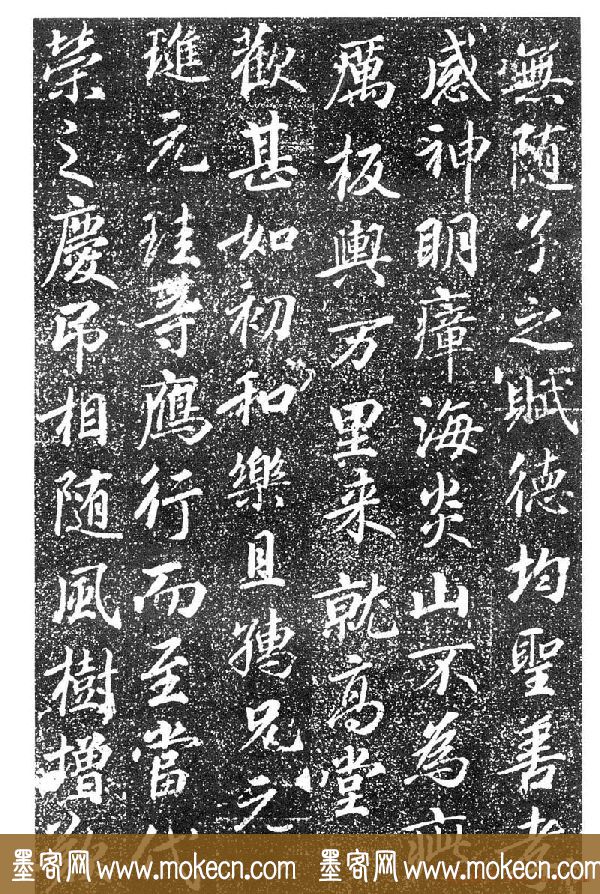 無随子之賦德均聖善孝
感神明瘴海炎山不為
厲板輿万里来就高堂
歡甚如初和樂且
兄元
璡元珪等鴈行而至當代
榮之慶吊相随風樹增
墨客网 www.mokecn.com 墨客网 www.mokecn.com